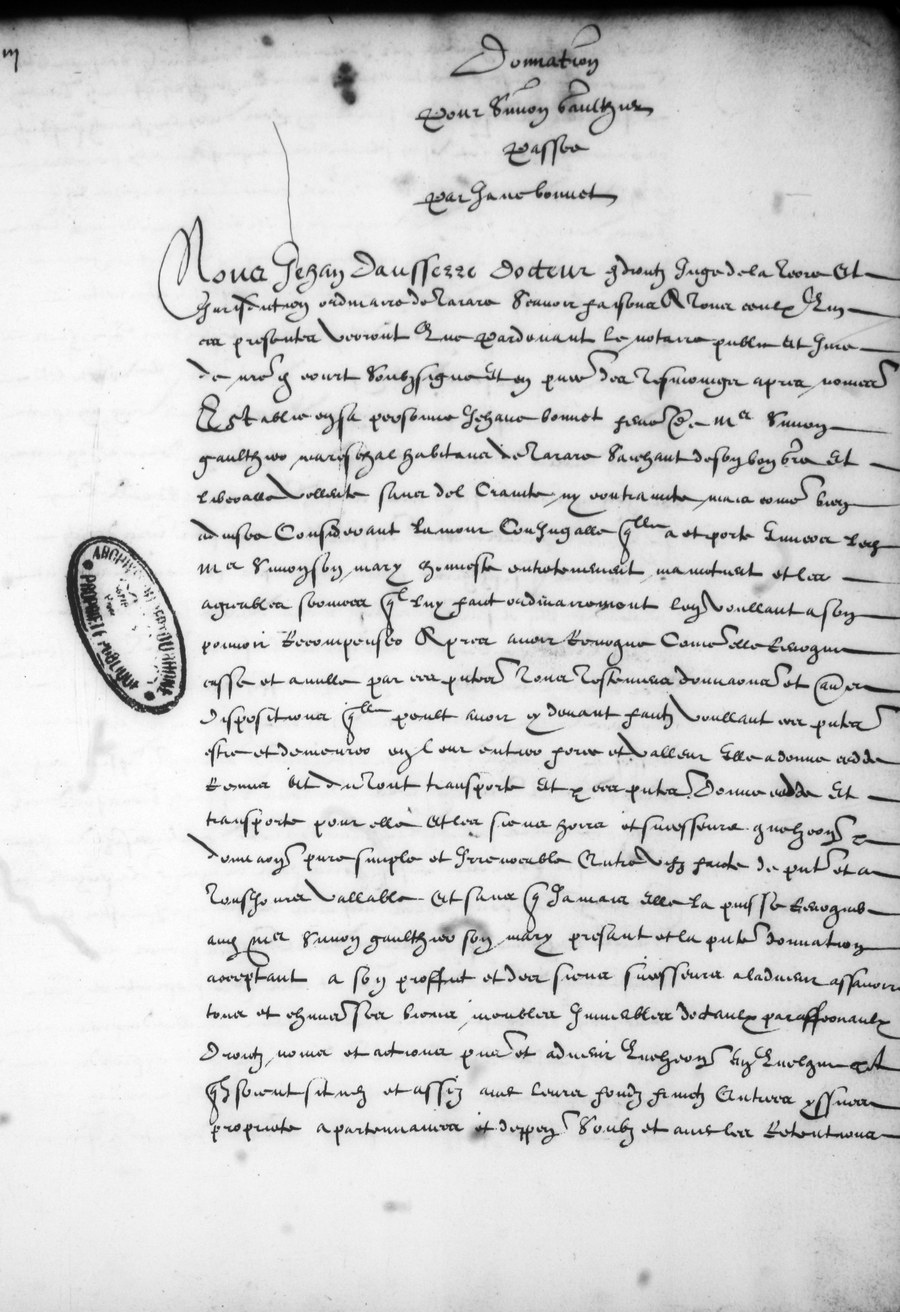 m
Donnation
Pour Simon Gaulthier
Passee
Par Jane bonnet
Nous Jehan Daussezze docteur ez droitz Juge de la Terre Et
Jurisdiction ordinaire de Tarare Scavoir faisons A tous ceulx Qui
ces presentes verront Que Pardevant le notaire public Et Jure
de nre court Soubzsigne Et en pnce des tesmoings apres nomez
Establie en sa personne Jehane bonnet femme de Me Simon
gaulthier mareschal habitans de Tarare Saichant de son bon gre Et
liberalle vollente sans dol Craincte ny contraincte mais come bien
advisee Considerant lamour Conjugalle qlle a et porte Envers led
Me Simon son mary honneste entretenement maintient et les
agreables services ql luy faict ordinairement leql voullant a son
pouvoir Recompenser Apres avoir Revoque Come elle Revoque
casse et anulle par ces pntes Tous testemens donnaons et aues
dispositions qlle peult avoir cy devant faictz voullant ces pntes
estre et demeurer en leur entiere force et valleur Elle a donne cedde
Remis et transporte Et par ces pntes Donne cedde Et
transporte pour elle Et les siens hoirs et successeurs quelzconqs
donnaon pure simple et Irrevocable Entre vifz faicte de pnt et a
Tousjours vallable Et sans q Jamais elle la puisse Revoquer
aud Me Simon gaulthier son mary presant et la pnte donnation
acceptant a son proffict et des siens successeurs a ladvenir assavoir
tous et chacuns ses biens meubles Immeubles dotaulx paraffernaulx
Droitz noms et actions pns et advenir Quelzconqs En Quelque
qlz soient situez et assis avec leurs fondz fruictz Entrees yssues
propriete apartenances et deppen Soubz et avec les Retentions
ARCHIVES DU RHONE
PROPRIETE PUBLIQUE